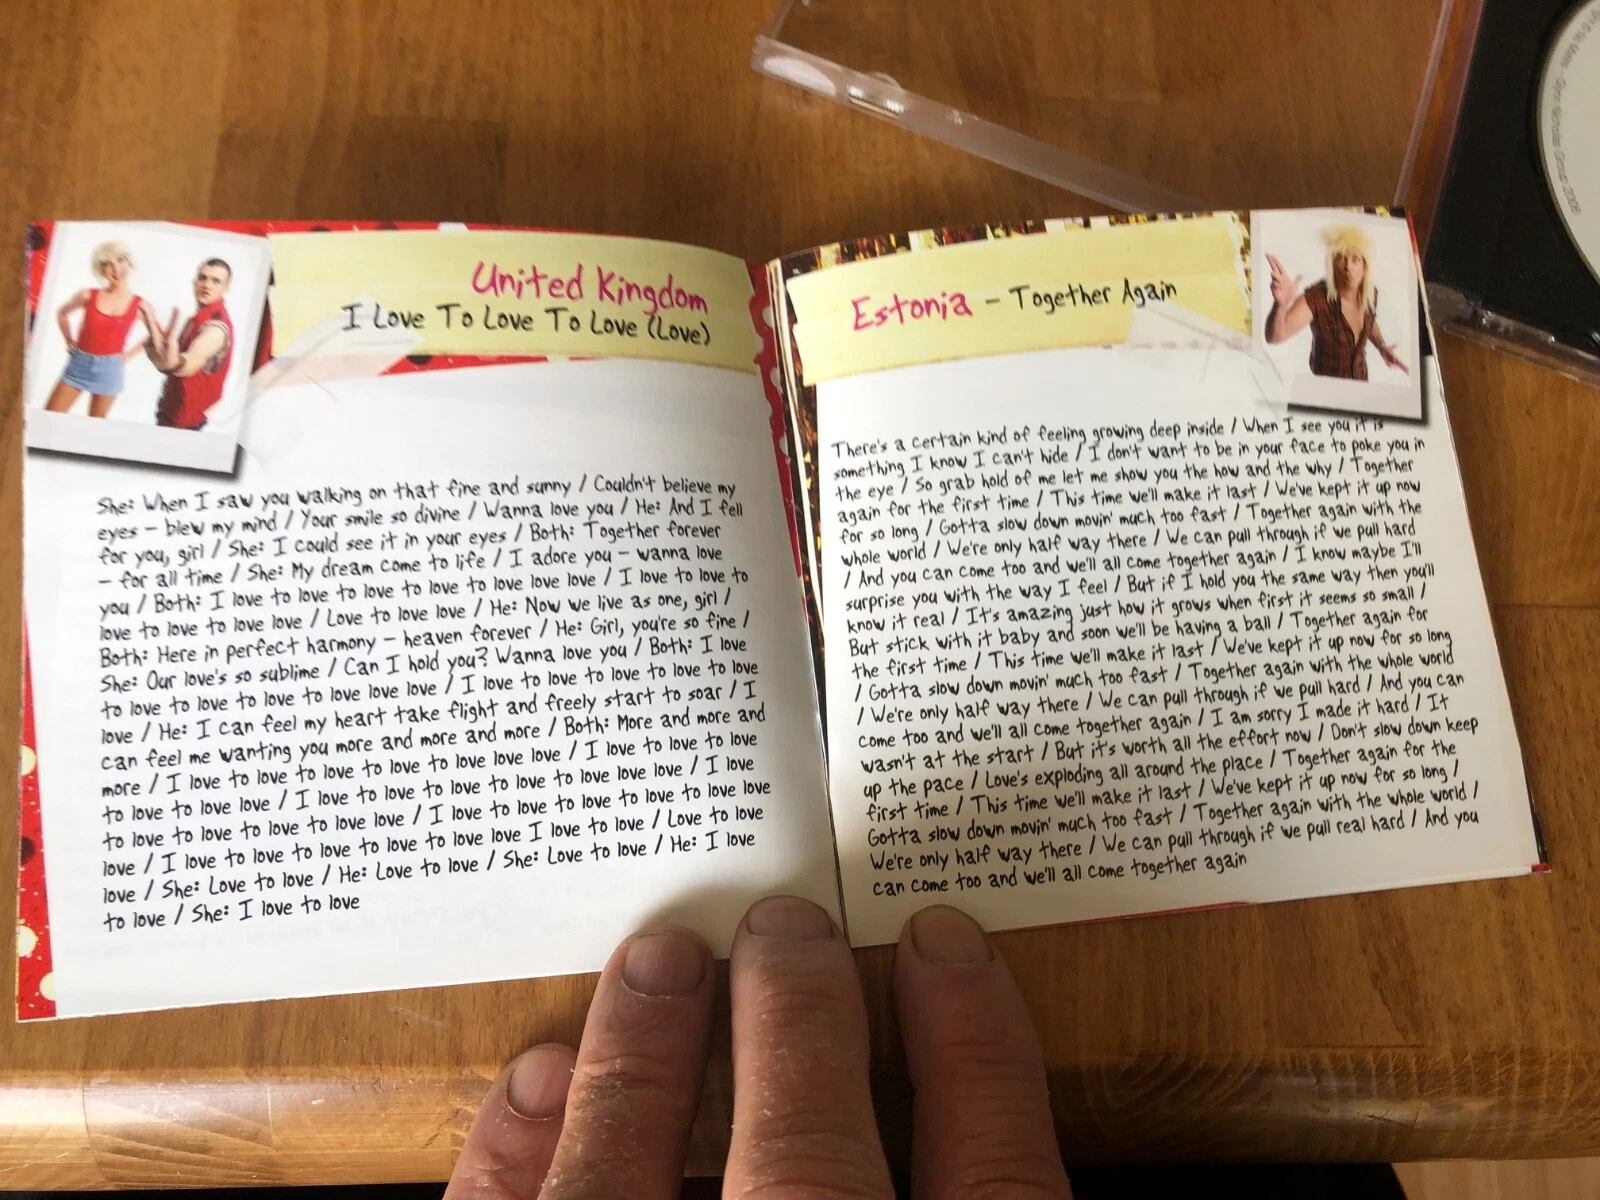 United Kingdom
I Love To Love To Love (Love)
She: When I saw you walking on that fine and sunny / Couldn't believe my
eyes – blew my mind / Your smile so divine / Wanna love you / He: And I fell
for you, girl / She: I could see it in your eyes / Both: Together forever
– for all time / She: My dream come to life / I adore you – wanna love
you / Both: I love to love to love to love to love love love / I love to love to
love to love to love to love love / Love to love love / He: Now we live as one, girl /
Both: Here in perfect harmony – heaven forever / He: Girl, you're so fine /
She: Our love's so sublime / Can I hold you? Wanna love you / Both: I love
to love to love to love to love love love / I love to love to love to love to love
love / He: I can feel my heart take flight and freely start to soar / I
can feel me wanting you more and more and more / Both: More and more and
more / I love to love to love to love to love love love / I love to love to love
to love to love love / I love to love to love to love to love love love / I love
to love to love to love to love love / I love to love to love to love to love love
love / I love to love to love to love to love love I love to love / Love to love
love / She: Love to love / He: Love to love / She: Love to love / He: I love
to love / She: I love to love
Estonia – Together Again
There's a certain kind of feeling growing deep inside / When I see you it is
something I know I can't hide / I don't want to be in your face to poke you in
the eye / So grab hold of me let me show you the how and the why / Together
again for the first time / This time we'll make it last / We've kept it up now
for so long / Gotta slow down movin' much too fast / Together again with the
whole world / We're only half way there / We can pull through if we pull hard
/ And you can come too and we'll all come together again / I know maybe I'll
surprise you with the way I feel / But if I hold you the same way then you'll
know it real / It's amazing just how it grows when first it seems so small /
But stick with it baby and soon we'll be having a ball / Together again for
the first time / This time we'll make it last / We've kept it up now for so long
/ Gotta slow down movin' much too fast / Together again with the whole world
/ We're only half way there / We can pull through if we pull hard / And you can
come too and we'll all come together again / I am sorry I made it hard / It
wasn't at the start / But it's worth all the effort now / Don't slow down keep
up the pace / Love's exploding all around the place / Together again for the
first time / This time we'll make it last / We've kept it up now for so long /
Gotta slow down movin' much too fast / Together again with the whole world /
We're only half way there / We can pull through if we pull real hard / And you
can come too and we'll all come together again
Group 2008